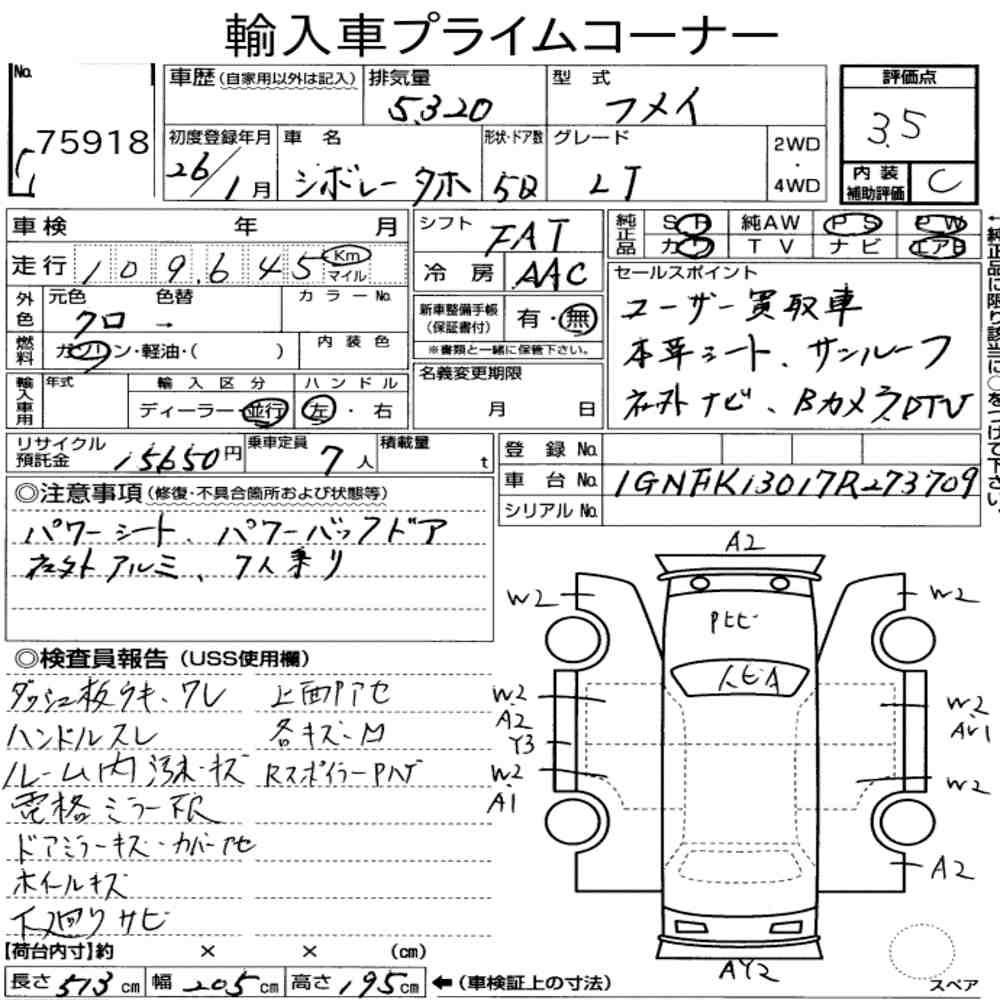 輸入車プライムコーナー
No. 75918
車歴(自家用以外は記入) 排気量 5320 型式 フメイ 評価点 3.5
初度登録年月 26/1月 車名 シボレータホ 形状・ドア数 5D グレード LT 2WD・4WD
内装補助評価 C
車検 年 月 シフト FAT 純正品 SR 純AW PS PW
カワ TV ナビ エアB
走行 109,645 Km マイル 冷房 AAC
外色 元色 クロ 色替 → カラーNo.
燃料 ガソリン・軽油・( ) 内装色
新車整備手帳(保証書付) 有・無
※書類と一緒に保管下さい。
セールスポイント
ユーザー買取車
本革シート、サンルーフ
社外ナビ、Bカメラ、DTV
←純正品に限り該当に○をつけて下さい。
輸入車用 年式 輸入区分 ハンドル
ディーラー・並行 左・右
名義変更期限 月 日
リサイクル預託金 15650円 乗車定員 7人 積載量 t
登録No.
車台No. 1GNFK13017R273709
シリアルNo.
◎注意事項(修復・不具合箇所および状態等)
パワーシート、パワーバックドア
社外アルミ、7人乗り
◎検査員報告(USS使用欄)
ダッシュ板ウキ・ワレ 上面P アセ
ハンドルスレ 各キズ・M
ルーム内汚れ・キズ RスポイラーPハゲ
電格ミラー不良
ドアミラーキズ・カバー
ホイールキズ
下廻りサビ
【荷台内寸】約 × × (cm)
長さ 513 cm 幅 205 cm 高さ 195 cm ←(車検証上の寸法)
A2
W2 W2
Pヒビ
人ヒA
W2 A2 W2
Y3
W2 A1 W2
A2
AY2
スペア